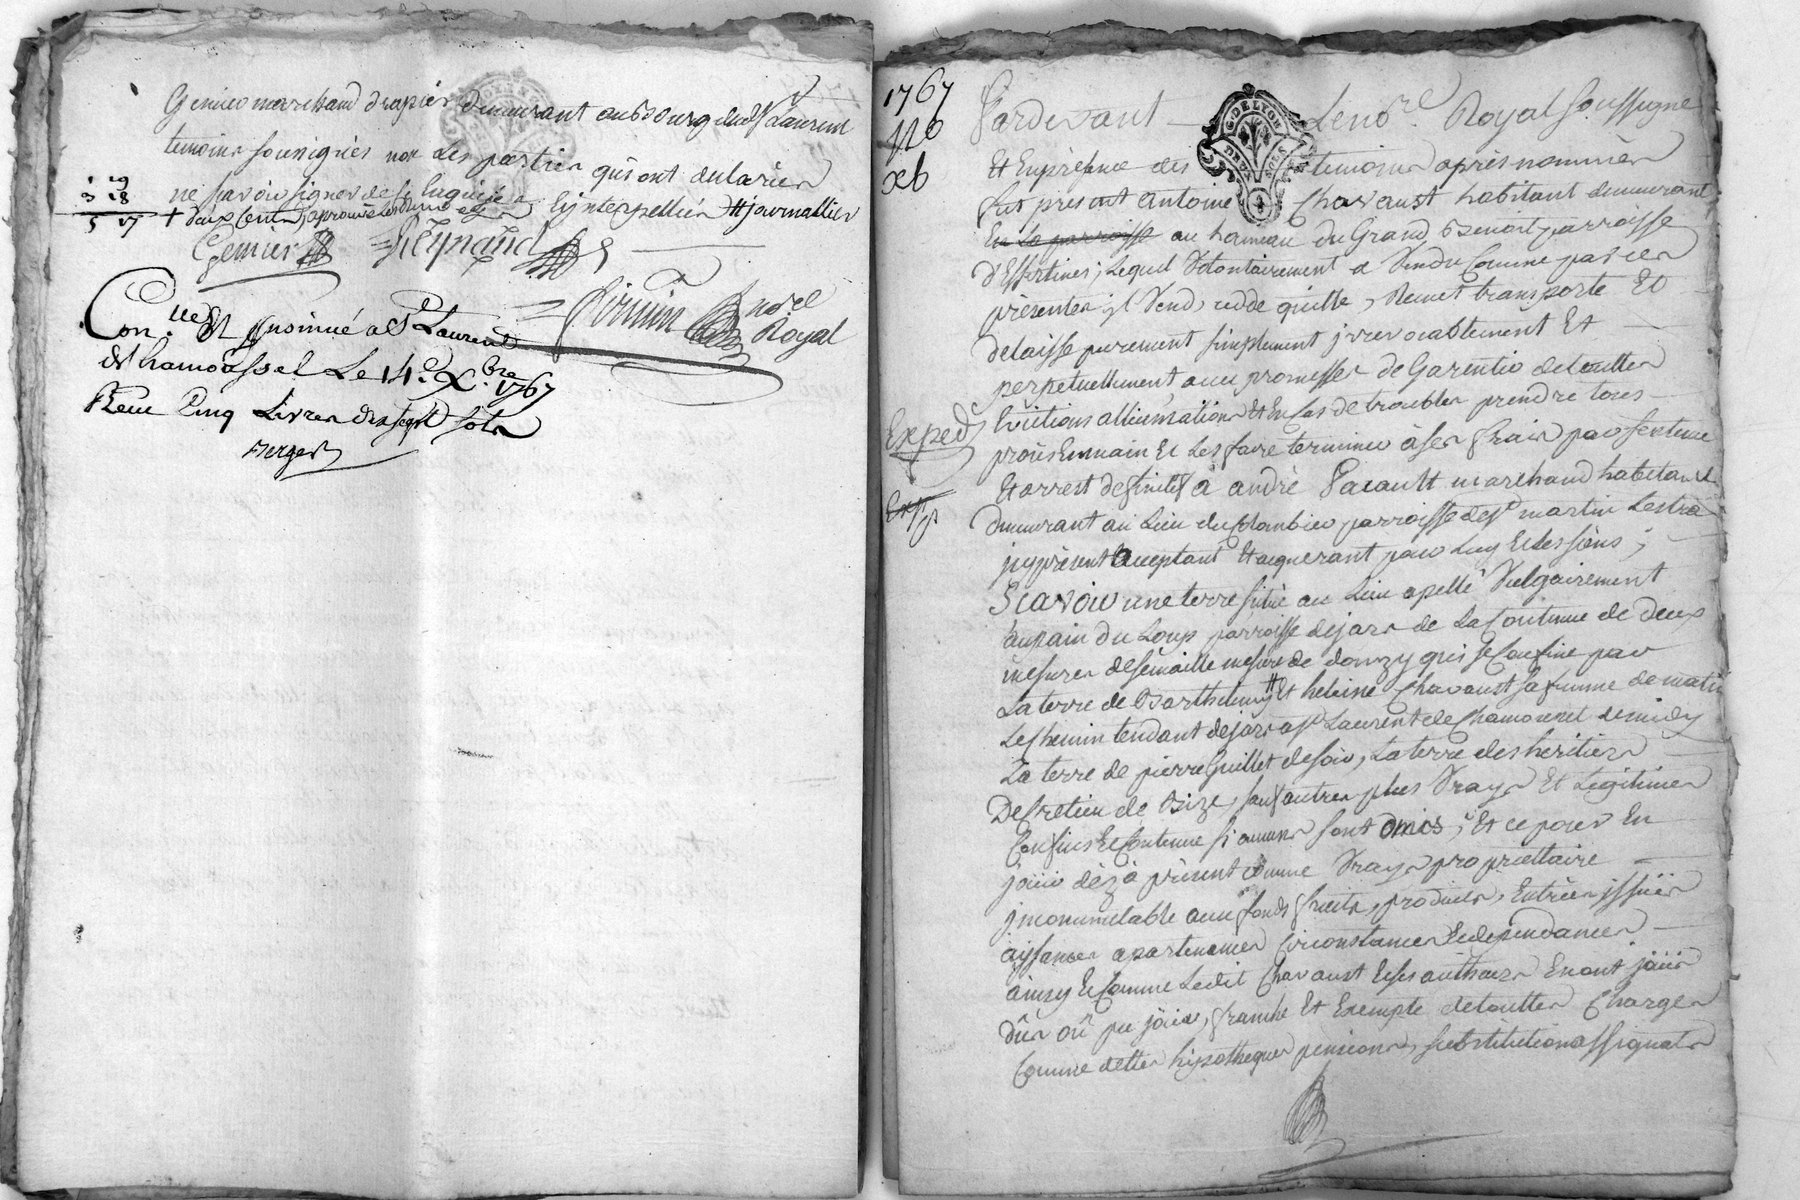 Genier marchand drapier demeurant au bourg dudt St Laurent
temoins soussignés non les parties qui ont declarés
ne savoir signer de ce enquises
et interpellés # journallier
+ deux cents, aprouvé
19
3 18
5 17
Genier
Reynaud
nore
Royal
Con.lle & insinué a St Laurent
de chamousset Le 14e Xbre 1767
Reçu Cinq Livres dix sept sols
Berger
G. DE LYON
DEUX SOLS
1767
Pardevant Le nore Royal soussigné
Et En presence des temoins après nommés
fut present antoine Chavaust habitant demeurant
En La parroisse au hameau du Grand Benoit parroisse
d'Essertines; Lequel Volontairement a Vendu Comme par ces
présentes il Vend, cedde quitte, Remet transporte Et
delaisse purement simplement irrevocablement Et
perpetuellement avec promesses de Garentie de touttes
Evictions allienations Et En Cas de troubles prendre tous
Exped.
procès En main Et Les faire terminer à ses frais par sentence
Et arrest definitif à andré Pacault marchand habitant
Exp.
demeurant au Lieu du Colombier parroisse de St martin Lestra
icy present acceptant Et acquerant pour Luy Et Les siens;
Scavoir une terre située au Lieu apellé Vulgairement
au pain du Loup parroisse de jas de La Contenue de deux
mesures de semaille mesure de donzy qui se Confine par
La terre de Barthelemy # Et heleine Chavaust sa femme de matin
Le chemin tendant de jas a St Laurent de Chamousset de midy
La terre de pierre Guillet de soir, La terre des heritiers
De Cretien de Bize, sauf autres plus Vrays Et Legitimes
Confins Et Contenue si aucuns sont omis; Et ce pour En
joüir dèz à présent comme Vray propriettaire
incommutable avec fonds fruits, produits, Entrées issües
aissances apartenances Circonstances Et dependances
ainsy Et Comme Ledit Chavaust Et ses autheurs En ont joüi
dûs où pu joüir, franche Et Exempte de touttes Charges
Comme dettes hipotheques pensions, substitution assignats